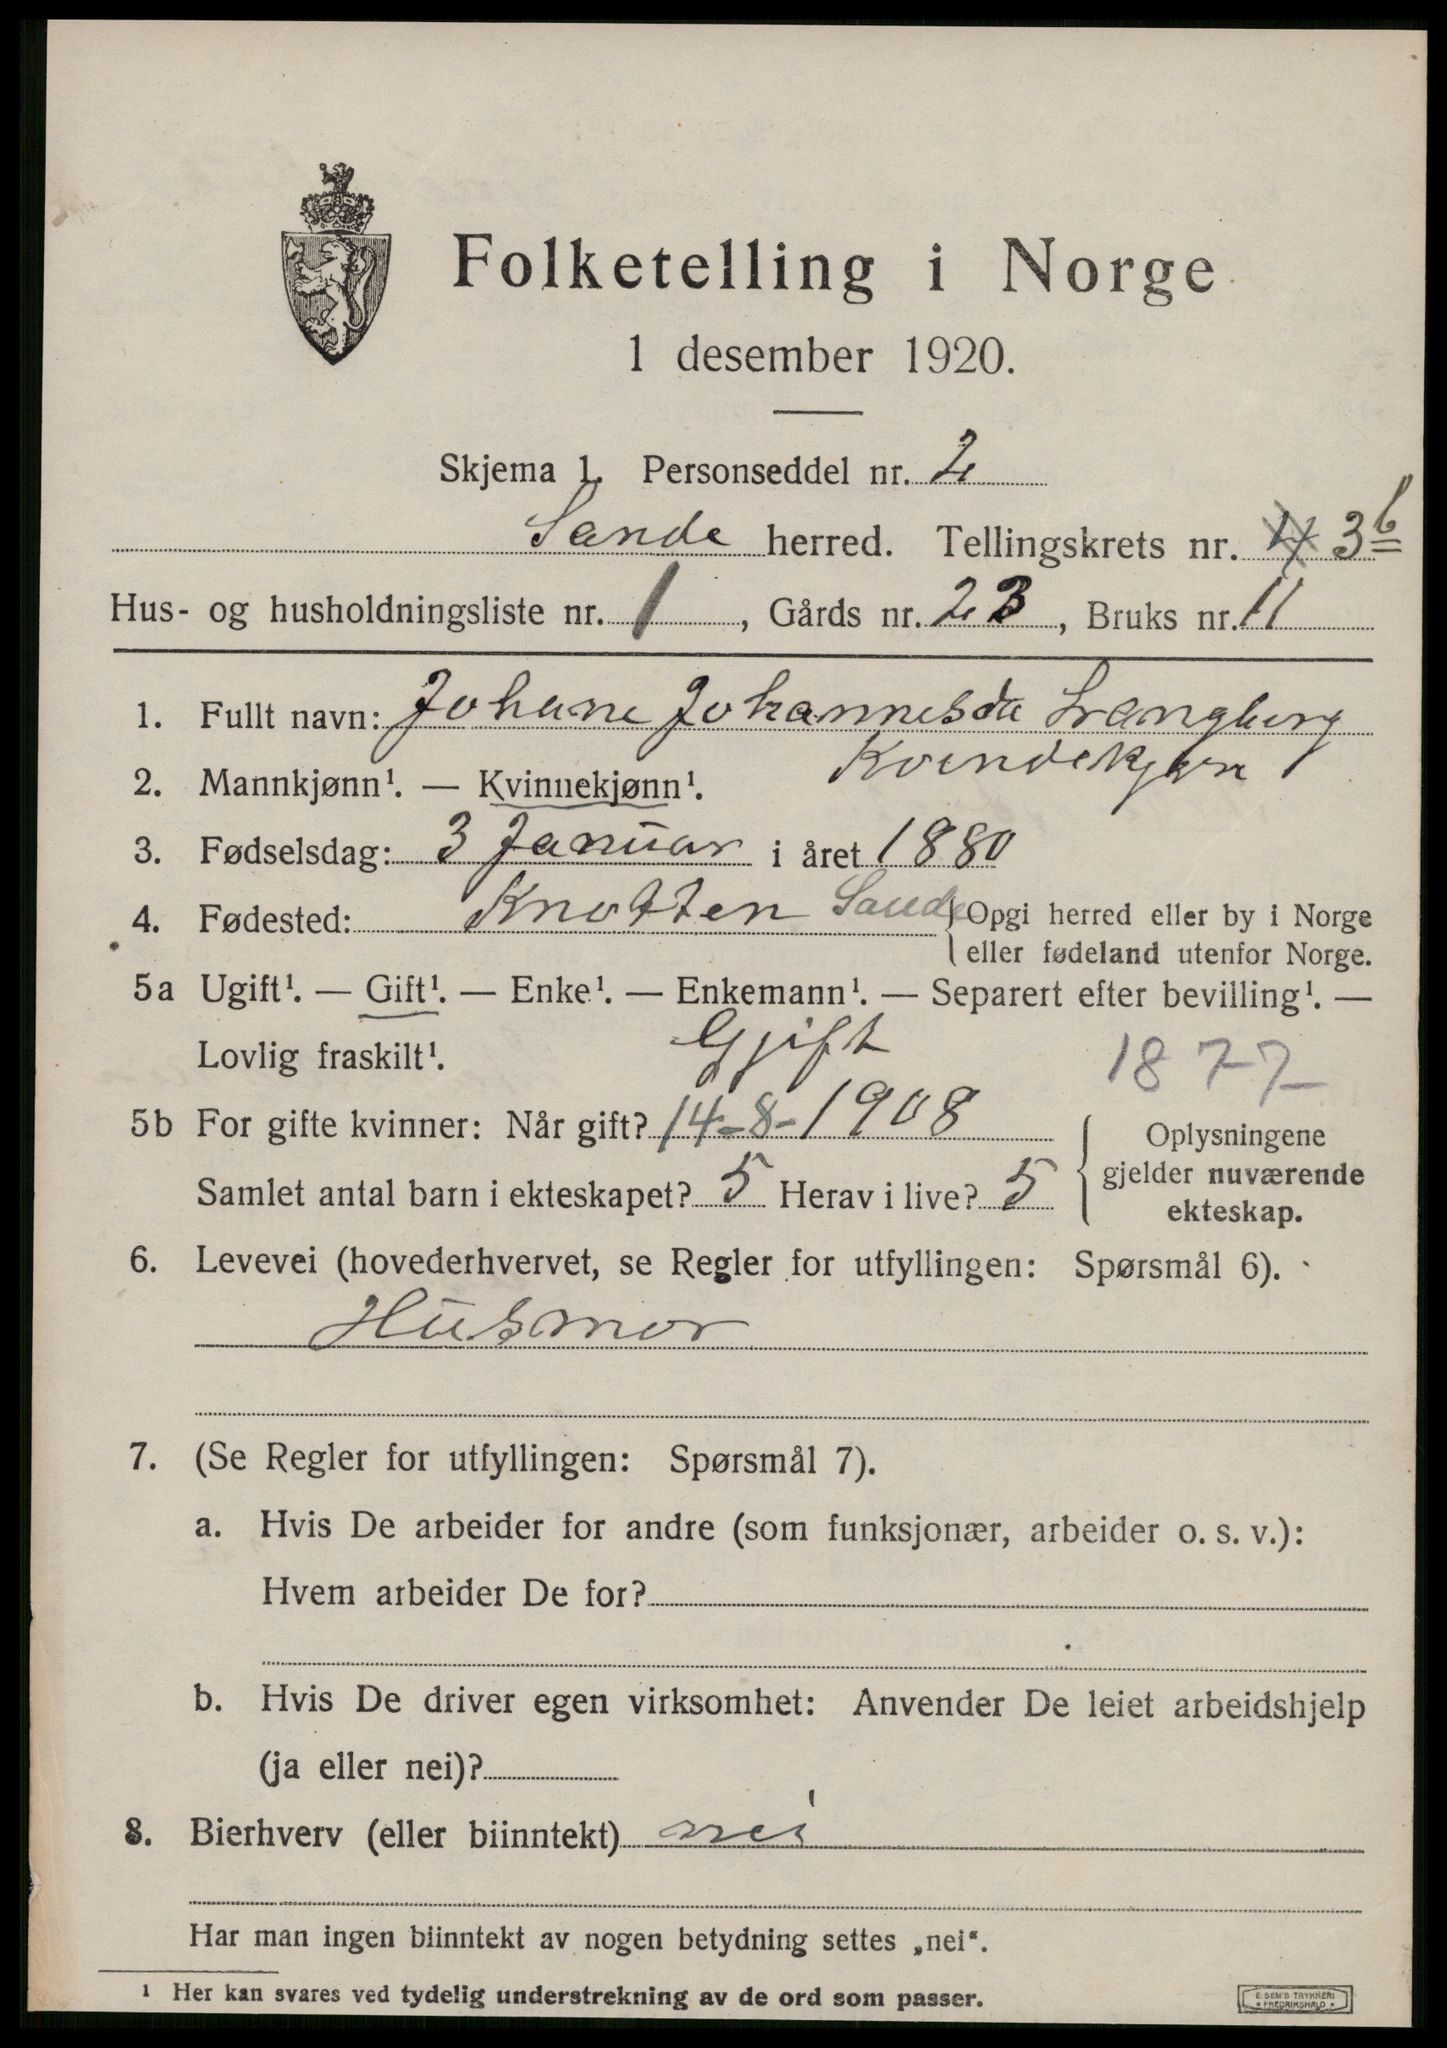 Folketelling i Norge
1 desember 1920.
Skjema 1. Personseddel nr. 2
Sande herred. Tellingskrets nr. 4 3b
Hus- og husholdningsliste nr. 1, Gårds nr. 23, Bruks nr. 11
1. Fullt navn: Johane Johannesda Langberg
2. Mannkjønn¹. — Kvinnekjønn¹. Kvindekjøn
3. Fødselsdag: 3 Januar i året 1880
4. Fødested: Knotten Sande {Opgi herred eller by i Norge
eller fødeland utenfor Norge.
5a Ugift¹. — Gift¹. — Enke¹. — Enkemann¹. — Separert efter bevilling¹. —
Lovlig fraskilt¹. Gjift 1877
5b For gifte kvinner: Når gift? 14-8-1908
Samlet antal barn i ekteskapet? 5 Herav i live? 5
{Oplysningene
gjelder nuværende
ekteskap.
6. Levevei (hovederhvervet, se Regler for utfyllingen: Spørsmål 6).
Husmor
7. (Se Regler for utfyllingen: Spørsmål 7).
a. Hvis De arbeider for andre (som funksjonær, arbeider o. s. v.):
Hvem arbeider De for?
b. Hvis De driver egen virksomhet: Anvender De leiet arbeidshjelp
(ja eller nei)?
8. Bierhverv (eller biinntekt) nei
Har man ingen biinntekt av nogen betydning settes „nei“.
¹ Her kan svares ved tydelig understrekning av de ord som passer.
E. SEM'S TRYKKERI
* FREDRIKSHALD *